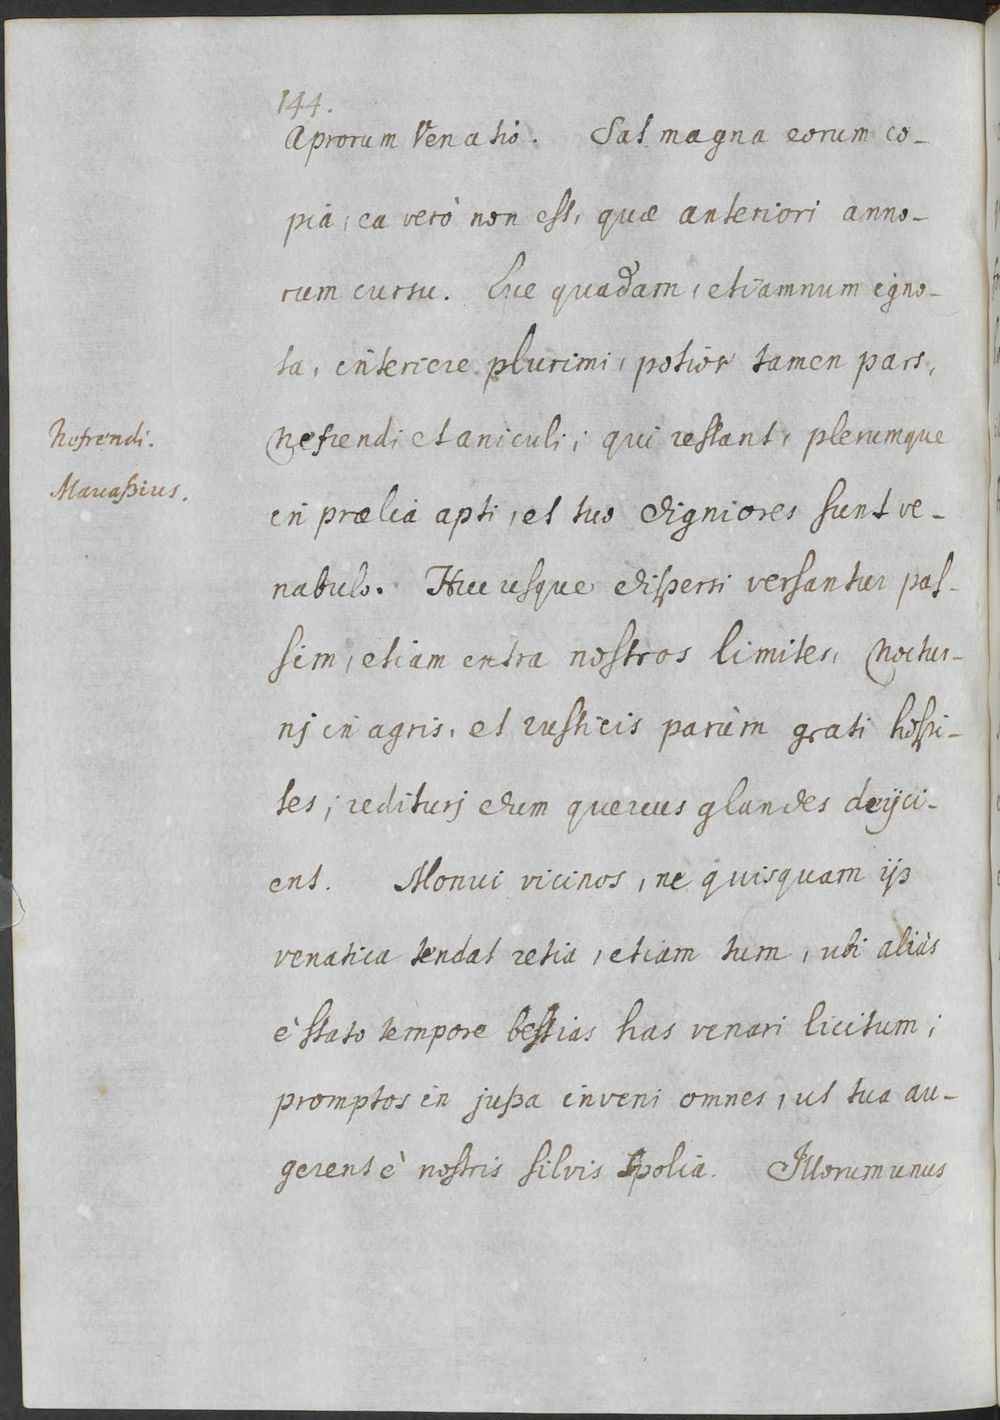 144.
Aprorum Venatio. Sat magna eorum co-
pia, ea verò non est, quæ anteriori anno-
rum cursu. Lue quadam, etiamnum igno-
ta, interiere plurimi, potior tamen pars,
Nefrendi.
Nefrendi et aniculi; qui restant, plerumque
in prælia apti, et tuo digniores sunt ve-
nabulo. Huc usque dispersi versantur pas-
sim, etiam intra nostros limites, Noctur-
nj in agris, et rusticis parùm grati hospi-
tes; rediturj dum quercus glandes deijci-
ent. Monui vicinos, ne quisquam ijs
venatica tendat retia, etiam tum, ubi aliàs
è stato tempore bestias has venari licitum;
promptos in jussa inveni omnes, ut tua au-
gerent è nostris silvis spolia. Illorum unus